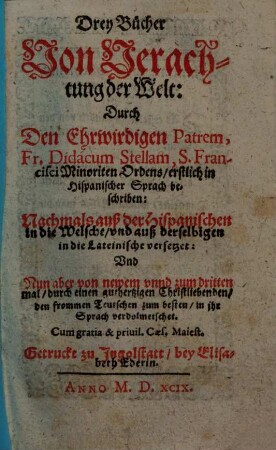 Drey Bücher
Von Verach-
tung der Welt:
Durch
Den Ehrwirdigen Patrem,
Fr. Didacum Stellam, S. Fran-
cisci Minoriten Ordens/ erstlich in
Hispanischer Sprach be-
schriben:
Nachmals auß der Hispanischen
in die Welsche/ vnd auß derselbigen
in die Lateinische versetzet:
Vnd
Nun aber von newem vnnd zum dritten
mal/ durch einen gutherzigen Christliebenden/
den frommen Teutschen zum besten/ in jhr
Sprach verdolmetschet.
Cum gratia & priuil. Cæs. Maiest.
Getruckt zu Ingolstatt/ bey Elisa-
beth Ederin.
ANNO M. D. XCIX.